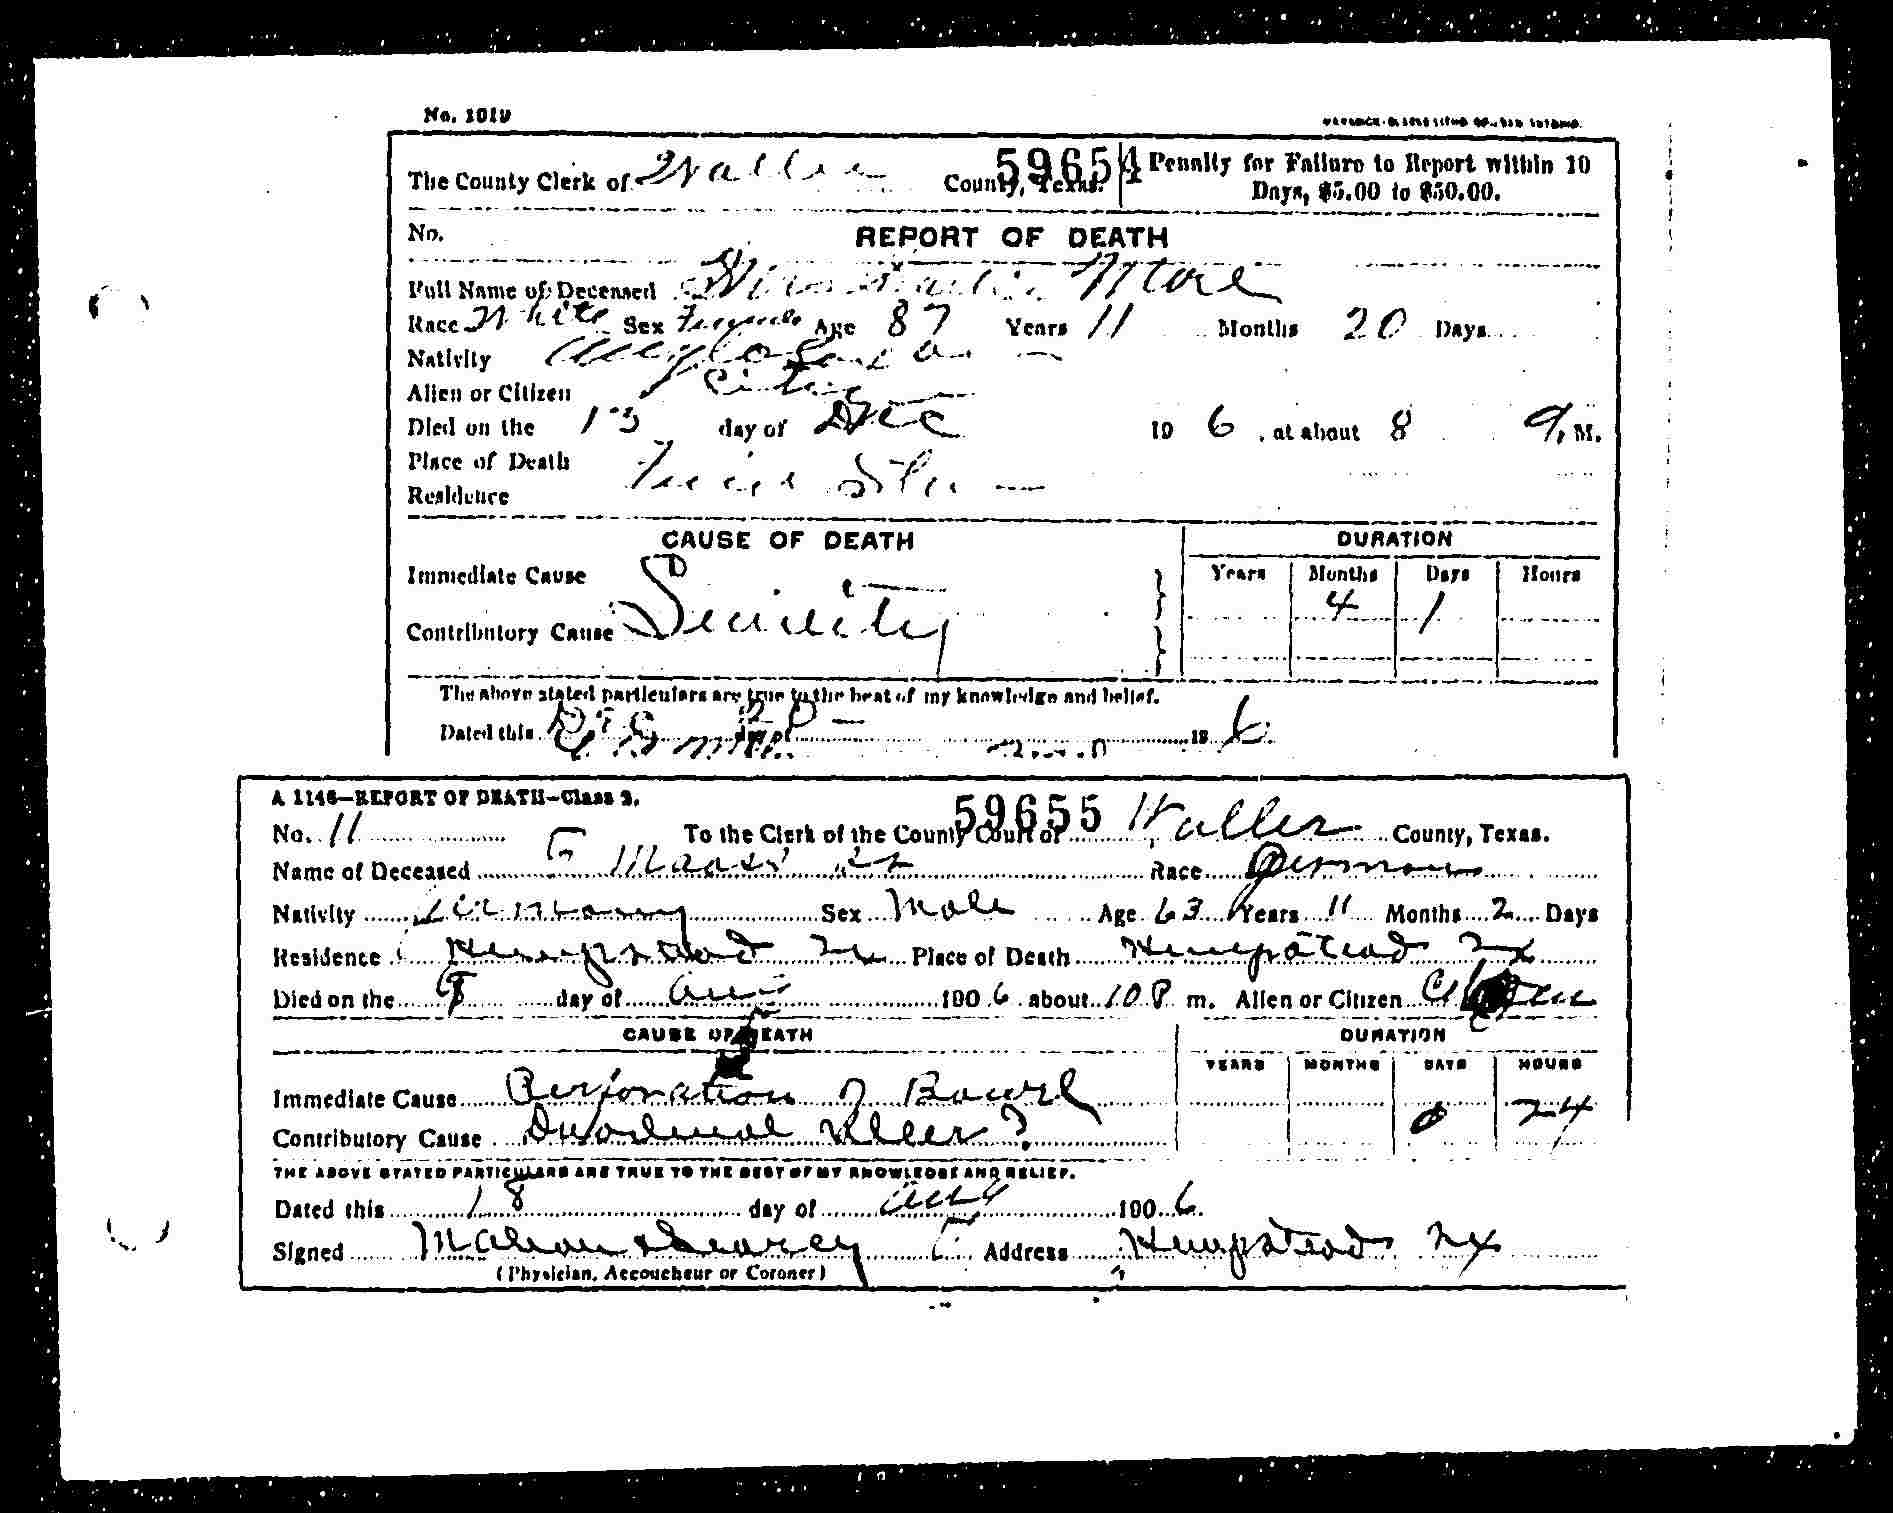 No. 1019
The County Clerk of Waller County, Texas. 59654 Penalty for Failure to Report within 10
Days, $5.00 to $50.00.
No. REPORT OF DEATH
Full Name of Deceased More
Race White Sex Female Age 87 Years 11 Months 20 Days
Nativity
Alien or Citizen
Died on the 13 day of Dec 190 6, at about 8 M.
Place of Death
Residence
CAUSE OF DEATH DURATION
Immediate Cause Years Months Days Hours
Senility 4 1
Contributory Cause
The above stated particulars are true to the best of my knowledge and belief.
Dated this Dec 20 day of 19 6
A 1146—REPORT OF DEATH—Class 2.
No. 11 To the Clerk of the County Court of 59655 Waller County, Texas.
Name of Deceased G Maass Race German
Nativity Germany Sex Male Age 63 Years 11 Months 2 Days
Residence Hempstead Tx Place of Death Hempstead Tx
Died on the day of Aug 190 6 about 10 P m. Alien or Citizen
CAUSE OF DEATH DURATION
YEARS MONTHS DAYS HOURS
Immediate Cause Perforation of Bowel 0 24
Contributory Cause Duodenal Ulcer?
THE ABOVE STATED PARTICULARS ARE TRUE TO THE BEST OF MY KNOWLEDGE AND BELIEF.
Dated this 18 day of Aug 190 6.
Signed Mahon & Searcy Address Hempstead Tx
(Physician, Accoucheur or Coroner)